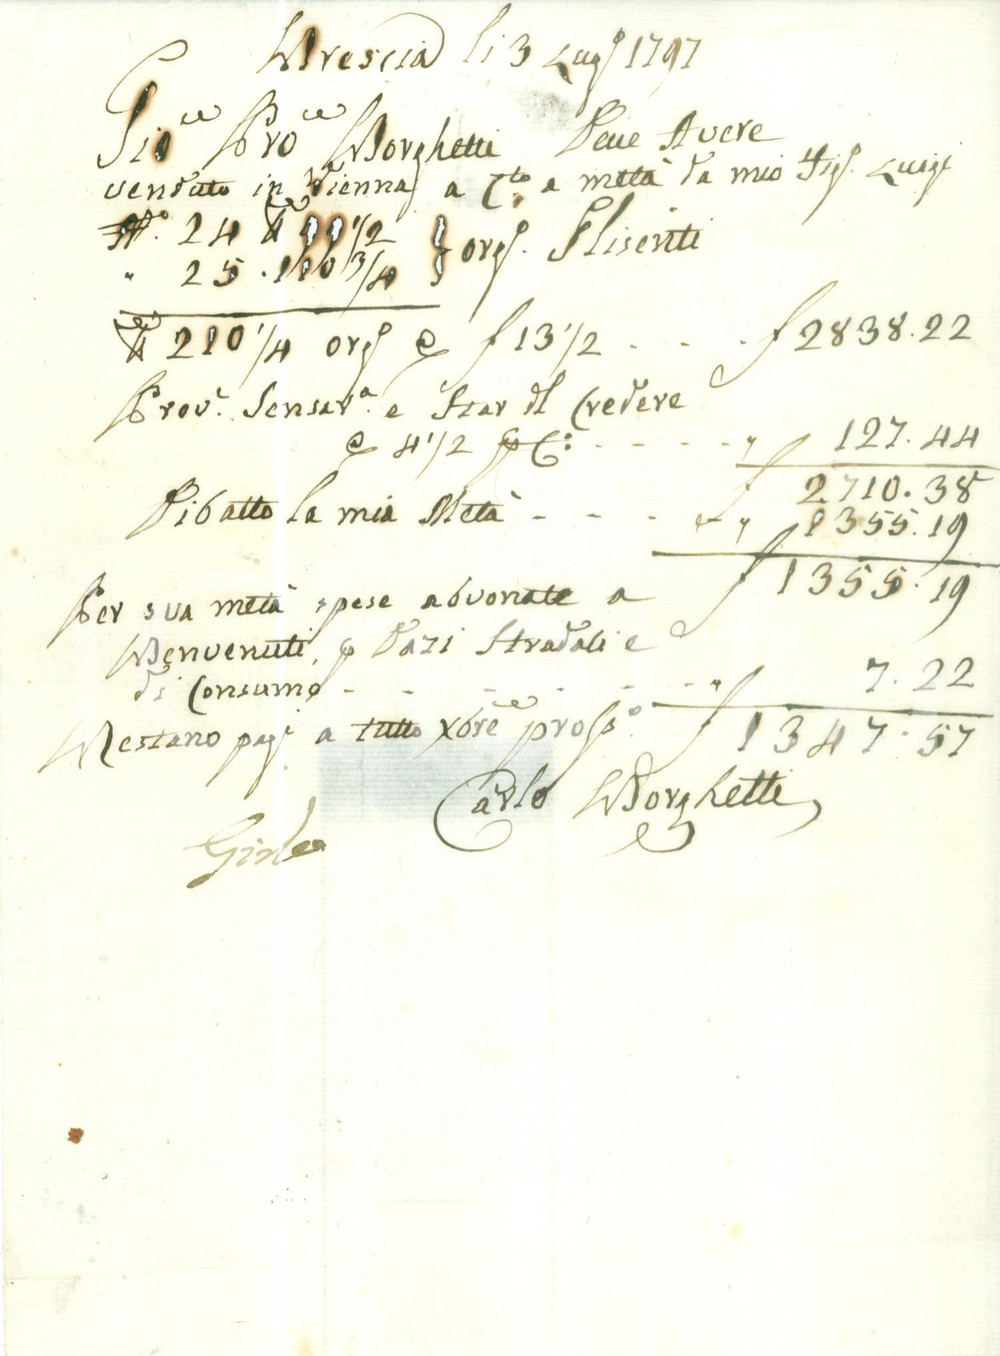 Brescia li 3 Lugl 1797
Sio Pro Borghetti Deve Avere
venduto in Vienna a Cto a metà da mio Figl Luigi
No. 24 99 1/2
" 25 . 110 3/4 } orgl.
210 1/4 orgl @ f 13 1/2 - - - f 2838.22
Prov. Sensara e Star del Credere
@ 4 1/2 p C: - - - - - " 127.44
f 2710.38
Dibatto la mia Metà - - - - " 1355.19
f 1355.19
Per sua metà spese abuonate a
Benvenuti, p Dazi Stradali e
di Consumo - - - - - " 7.22
Restano pagl a tutto Xbre prosso f 1347.57
Carlo Borghetti